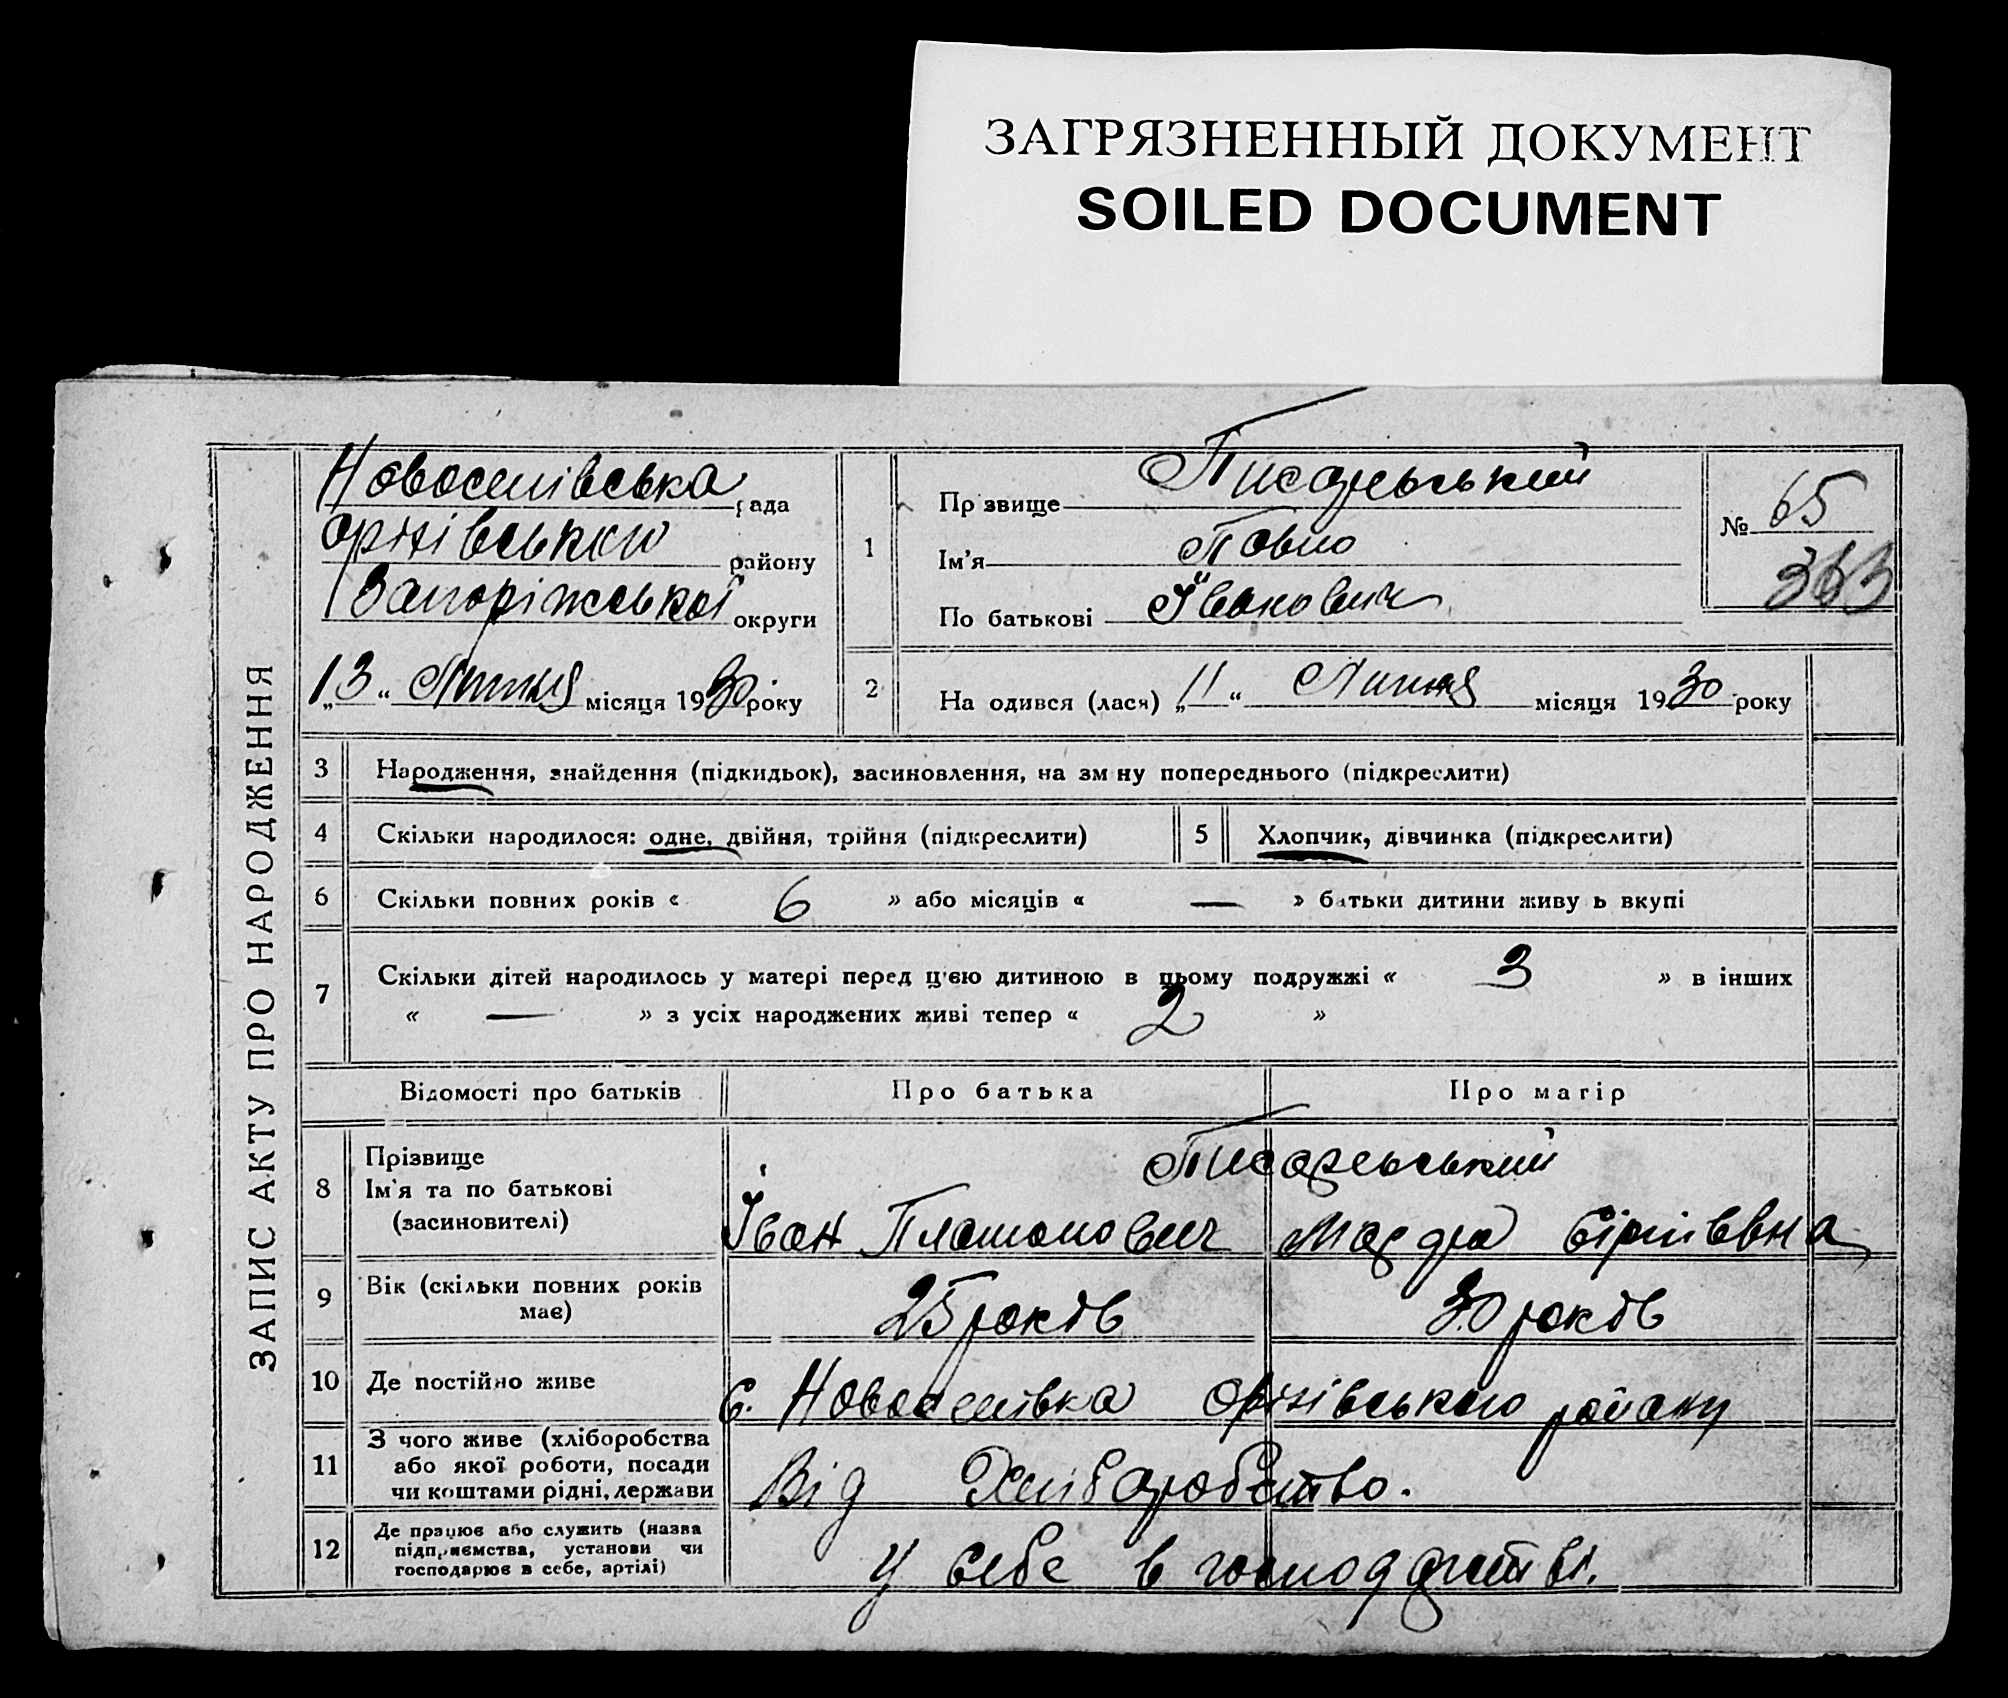 ЗАГРЯЗНЕННЫЙ ДОКУМЕНТ
SOILED DOCUMENT
ЗАПИС АКТУ ПРО НАРОДЖЕННЯ
Новоселівська рада
Оріхівського району
Запоріжської округи
„13“ Липня місяця 1930 року
1
Пр звище Писарський
Ім'я Павло
По батькові Іванович
№ 65
363
2 На одився (лася) „11“ Липня місяця 1930 року
3 Народження, знайдення (підкидьок), засиновлення, на зм ну попереднього (підкреслити)
4 Скільки народилося: одне, двійня, трійня (підкреслити) 5 Хлопчик, дівчинка (підкреслити)
6 Скільки повних років « 6 » або місяців « — » батьки дитини живу ь вкупі
7 Скільки дітей народилось у матері перед цією дитиною в цьому подружжі « 3 » в інших
« — » з усіх народжених живі тепер « 2 »
Відомості про батьків Про батька Про матір
8 Прізвище
Ім'я та по батькові
(засиновителі)
Писарський
Іван Платонович
9 Вік (скільки повних років
має)
25 років 30 років
10 Де постійно живе с. Новоселівка Оріхівського району
11 З чого живе (хліборобства
або якої роботи, посади
чи коштами рідні, держави
Від Хліборобства.
12 Де працює або служить (назва
підприємства, установи чи
господарює в себе, артілі)
у себе в господарстві.